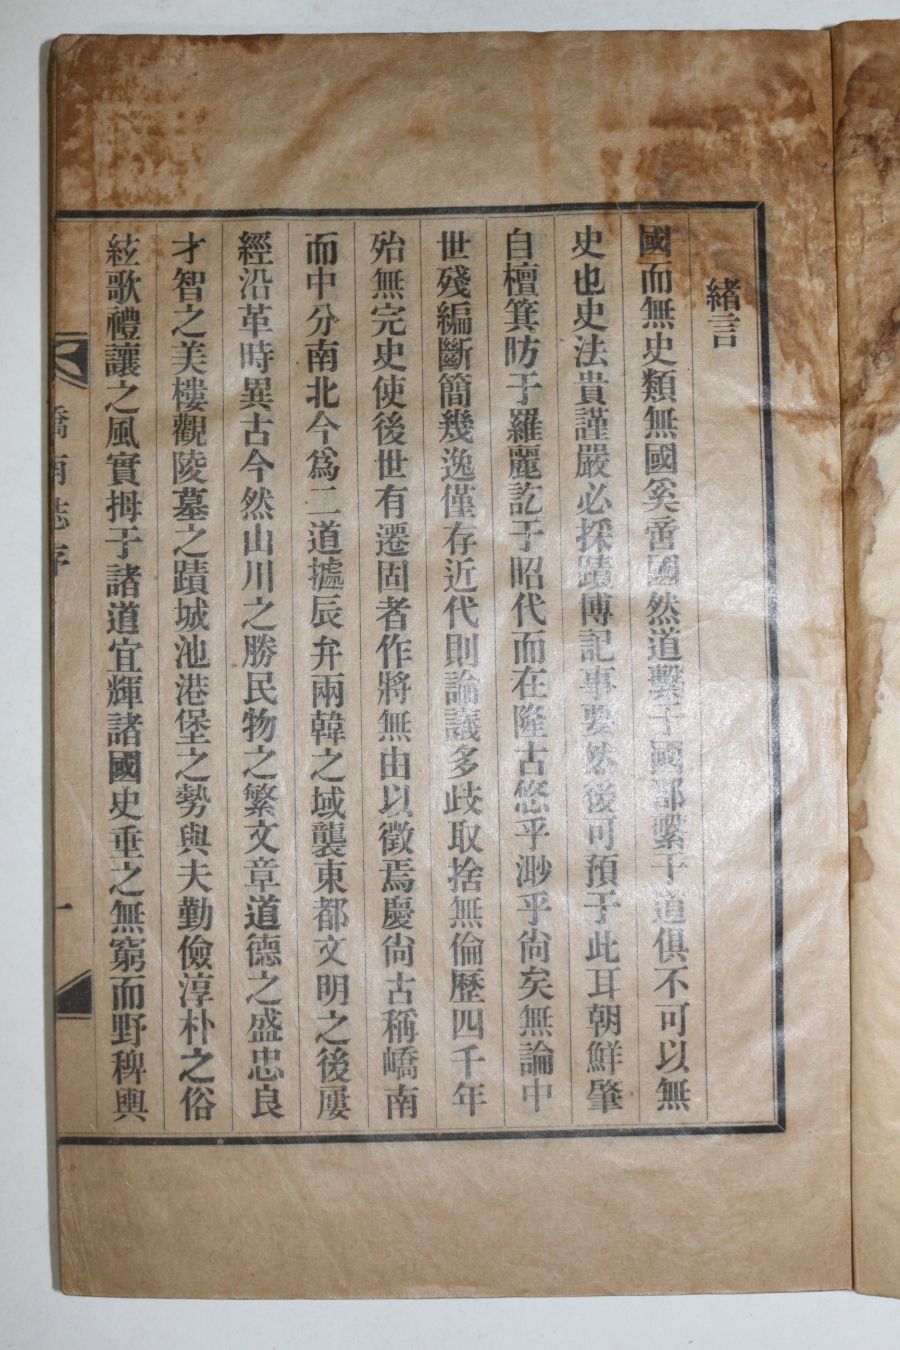 緖言
國而無史類無國奚啻國然道繫于國郡繫于道俱不可以無
史也史法貴謹嚴必採蹟傅記事要然後可預于此耳朝鮮肇
自檀箕昉于羅麗訖于昭代而在隆古悠乎渺乎尙矣無論中
世殘編斷簡幾逸僅存近代則論議多歧取捨無倫歷四千年
殆無完史使後世有遷固者作將無由以徵焉慶尙古稱嶠南
而中分南北今爲二道據辰弁兩韓之域襲東都文明之後屢
經沿革時異古今然山川之勝民物之繁文章道德之盛忠良
才智之美樓觀陵墓之蹟城池港堡之勢與夫勤儉淳朴之俗
絃歌禮讓之風實拇于諸道宜輝諸國史垂之無窮而野稗輿
嶠南誌序
一